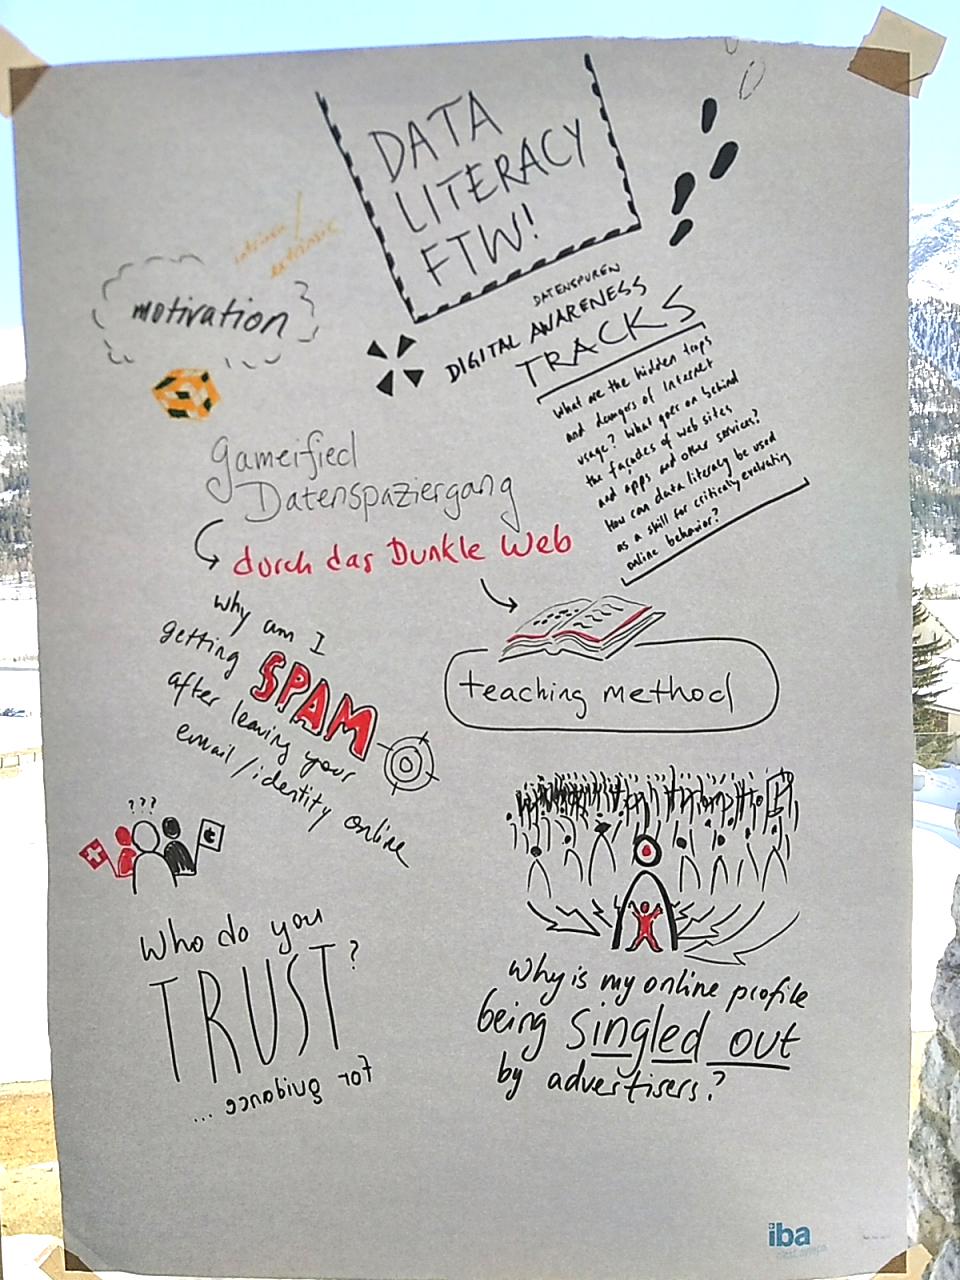 DATA
LITERACY
FTW!
intrinsic/
extrinsic
motivation
DATENSPUREN
DIGITAL AWARENESS
TRACKS
What are the hidden traps
and dangers of Internet
usage? What goes on behind
the façades of web sites
and apps and other services?
How can data literacy be used
as a skill for critically evaluating
online behavior?
Gameified
Datenspaziergang
durch das Dunkle Web
teaching method
why am I
getting SPAM
after leaving your
email/identity online
???
Who do you
TRUST?
for guidance ...
Why is my online profile
being singled out
by advertisers?
iba